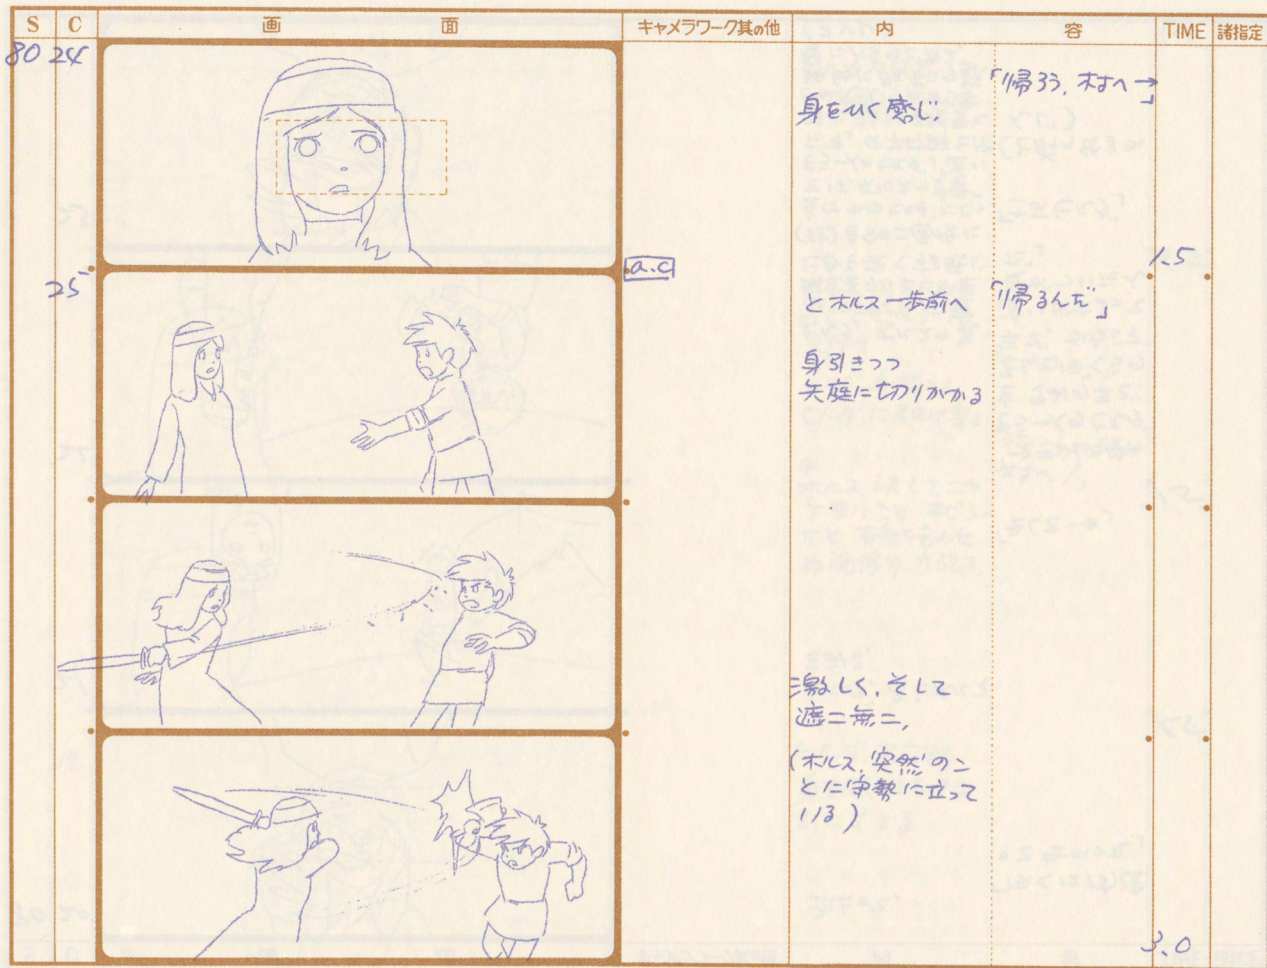 S C 画 面 キャメラワーク其の他 内 容 TIME 諸指定
80 24
「帰ろう、村へ→
」
身をひく感じ、
1.5
25
a.c
とホルス一歩前へ
「帰るんだ」
身引きつつ
矢庭に切りかかる
激しく、そして
遮二無二、
(ホルス、突然のこ
とに守勢に立って
いる)
3.0